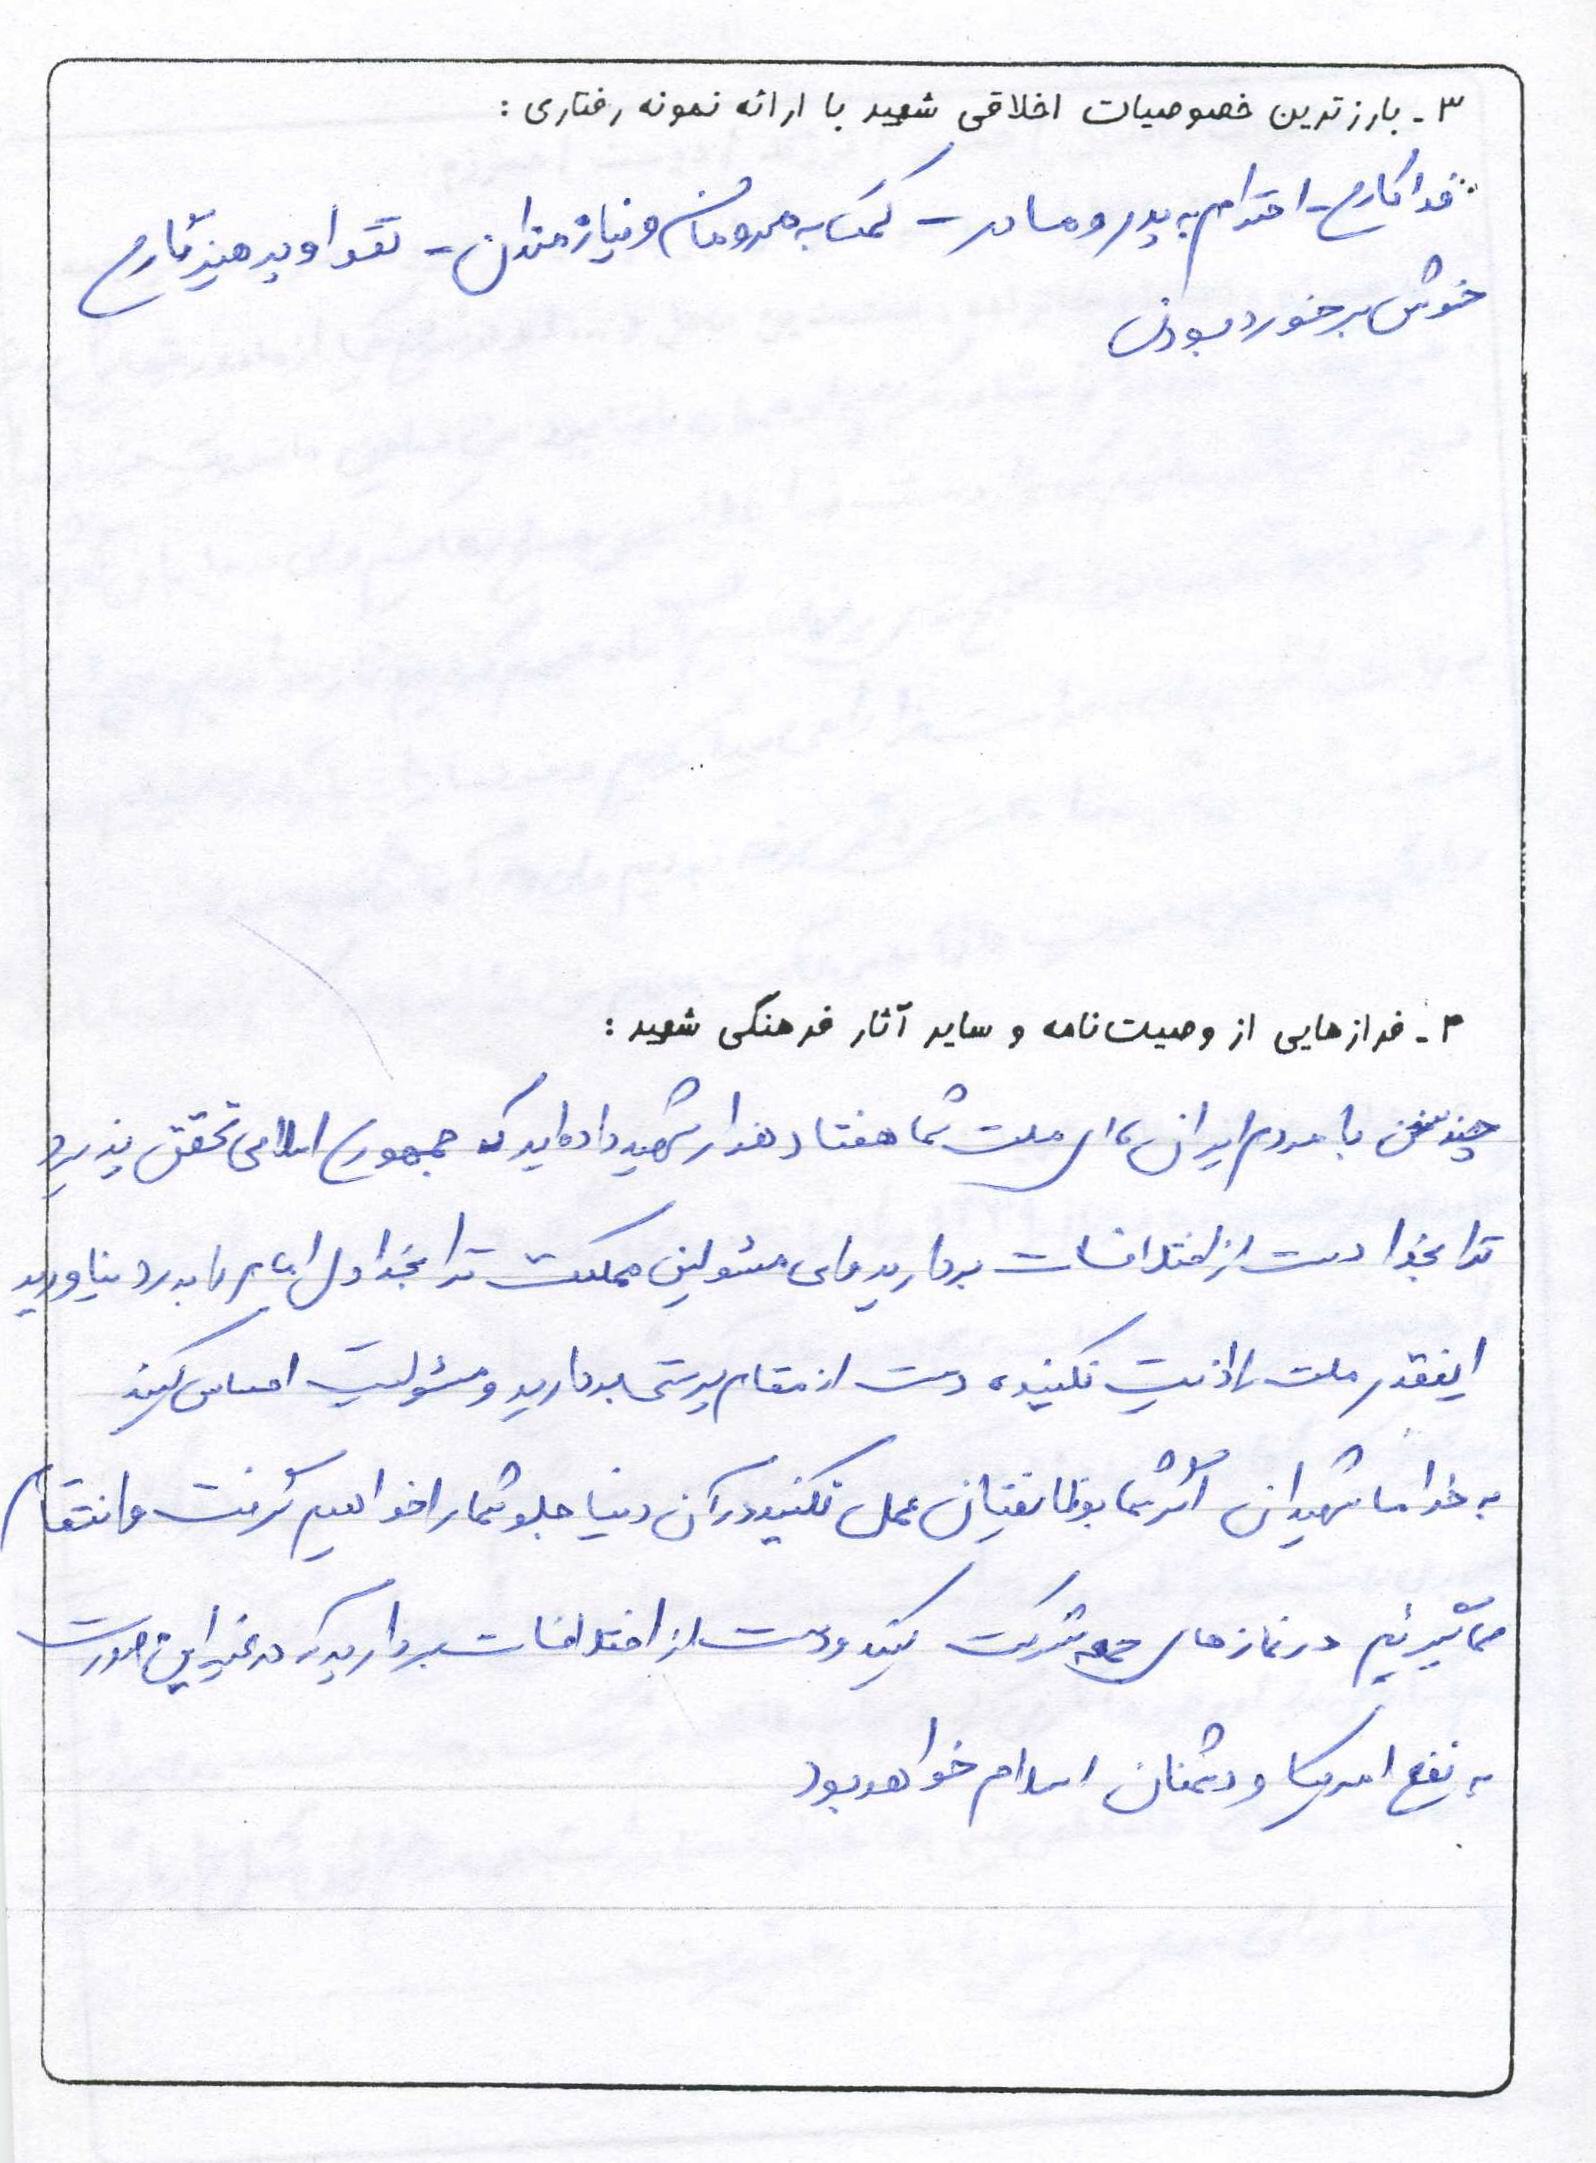 ۳ - بارزترین خصوصیات اخلاقی شهید با ارائه نمونه رفتاری :
فداکاری - احترام به پدر و مادر - کمک به محرومان و نیازمندان - تقوا و پرهیزگاری
خوش برخورد بودن
۴ - فرازهایی از وصیت‌نامه و سایر آثار فرهنگی شهید :
چند سخن با مردم ایران، ای ملت شما هفتاد هزار شهید داده‌اید که جمهوری اسلامی تحقق پذیرد
ترا بخدا دست از اختلافات بردارید و ای مسئولین مملکت ترا بخدا دل امام را بدرد نیاورید
اینقدر ملت را اذیت نکنید، دست از مقام پرستی بردارید و مسئولیت احساس کنید
به خدا ما شهیدان اگر شما بوظائفتان عمل نکنید در آن دنیا جلو شما را خواهیم گرفت و انتقام
میگیریم در نمازهای جمعه شرکت کنید و دست از اختلافات بردارید که در غیر این صورت
به نفع امریکا و دشمنان اسلام خواهد بود